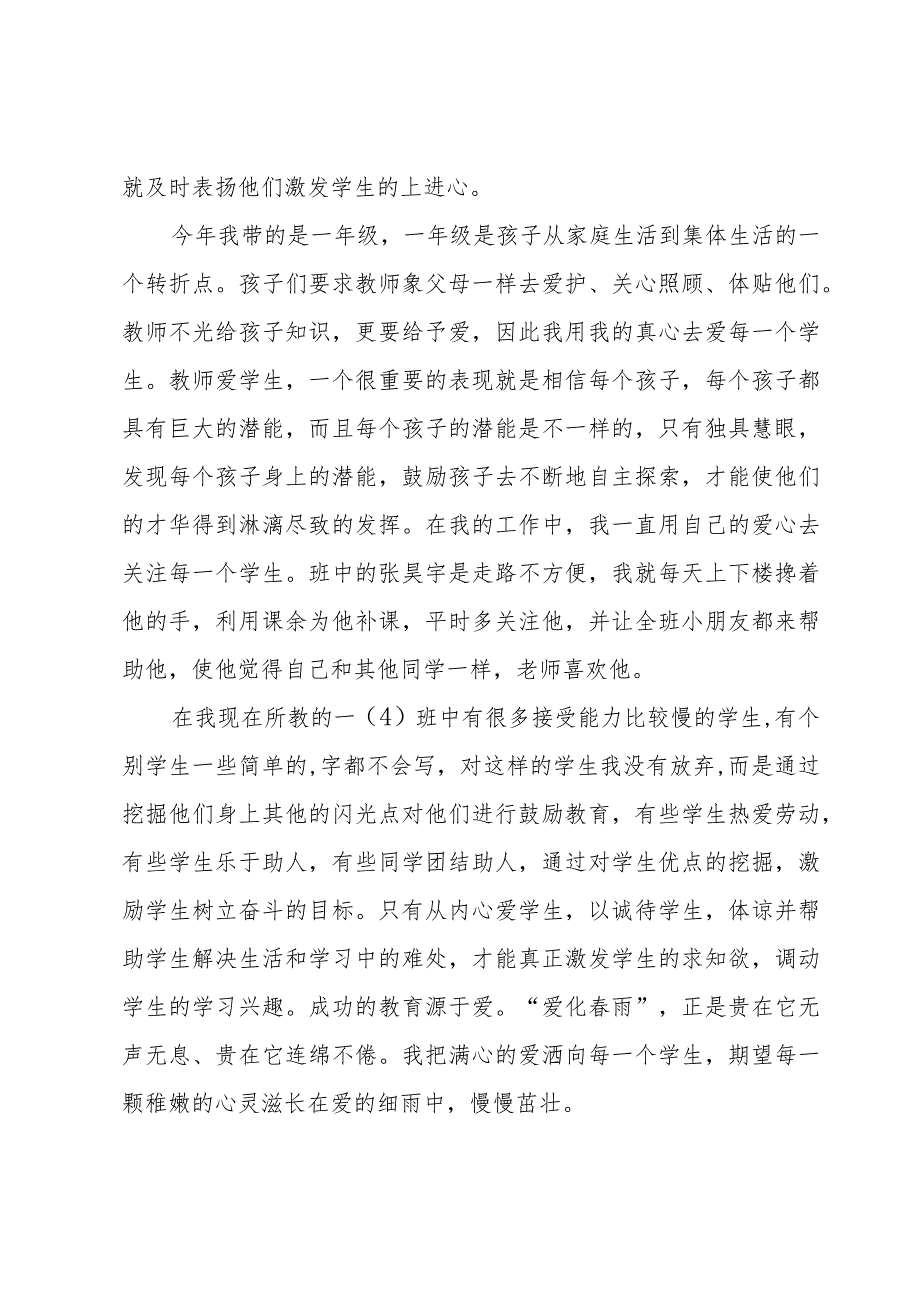 就及时表扬他们激发学生的上进心。
今年我带的是一年级，一年级是孩子从家庭生活到集体生活的一
个转折点。孩子们要求教师象父母一样去爱护、关心照顾、体贴他们。
教师不光给孩子知识，更要给予爱，因此我用我的真心去爱每一个学
生。教师爱学生，一个很重要的表现就是相信每个孩子，每个孩子都
具有巨大的潜能，而且每个孩子的潜能是不一样的，只有独具慧眼，
发现每个孩子身上的潜能，鼓励孩子去不断地自主探索，才能使他们
的才华得到淋漓尽致的发挥。在我的工作中，我一直用自己的爱心去
关注每一个学生。班中的张昊宇是走路不方便，我就每天上下楼搀着
他的手，利用课余为他补课，平时多关注他，并让全班小朋友都来帮
助他，使他觉得自己和其他同学一样，老师喜欢他。
在我现在所教的一（4）班中有很多接受能力比较慢的学生,有个
别学生一些简单的,字都不会写，对这样的学生我没有放弃,而是通过
挖掘他们身上其他的闪光点对他们进行鼓励教育，有些学生热爱劳动，
有些学生乐于助人，有些同学团结助人，通过对学生优点的挖掘，激
励学生树立奋斗的目标。只有从内心爱学生，以诚待学生，体谅并帮
助学生解决生活和学习中的难处，才能真正激发学生的求知欲，调动
学生的学习兴趣。成功的教育源于爱。“爱化春雨”，正是贵在它无
声无息、贵在它连绵不倦。我把满心的爱洒向每一个学生，期望每一
颗稚嫩的心灵滋长在爱的细雨中，慢慢茁壮。